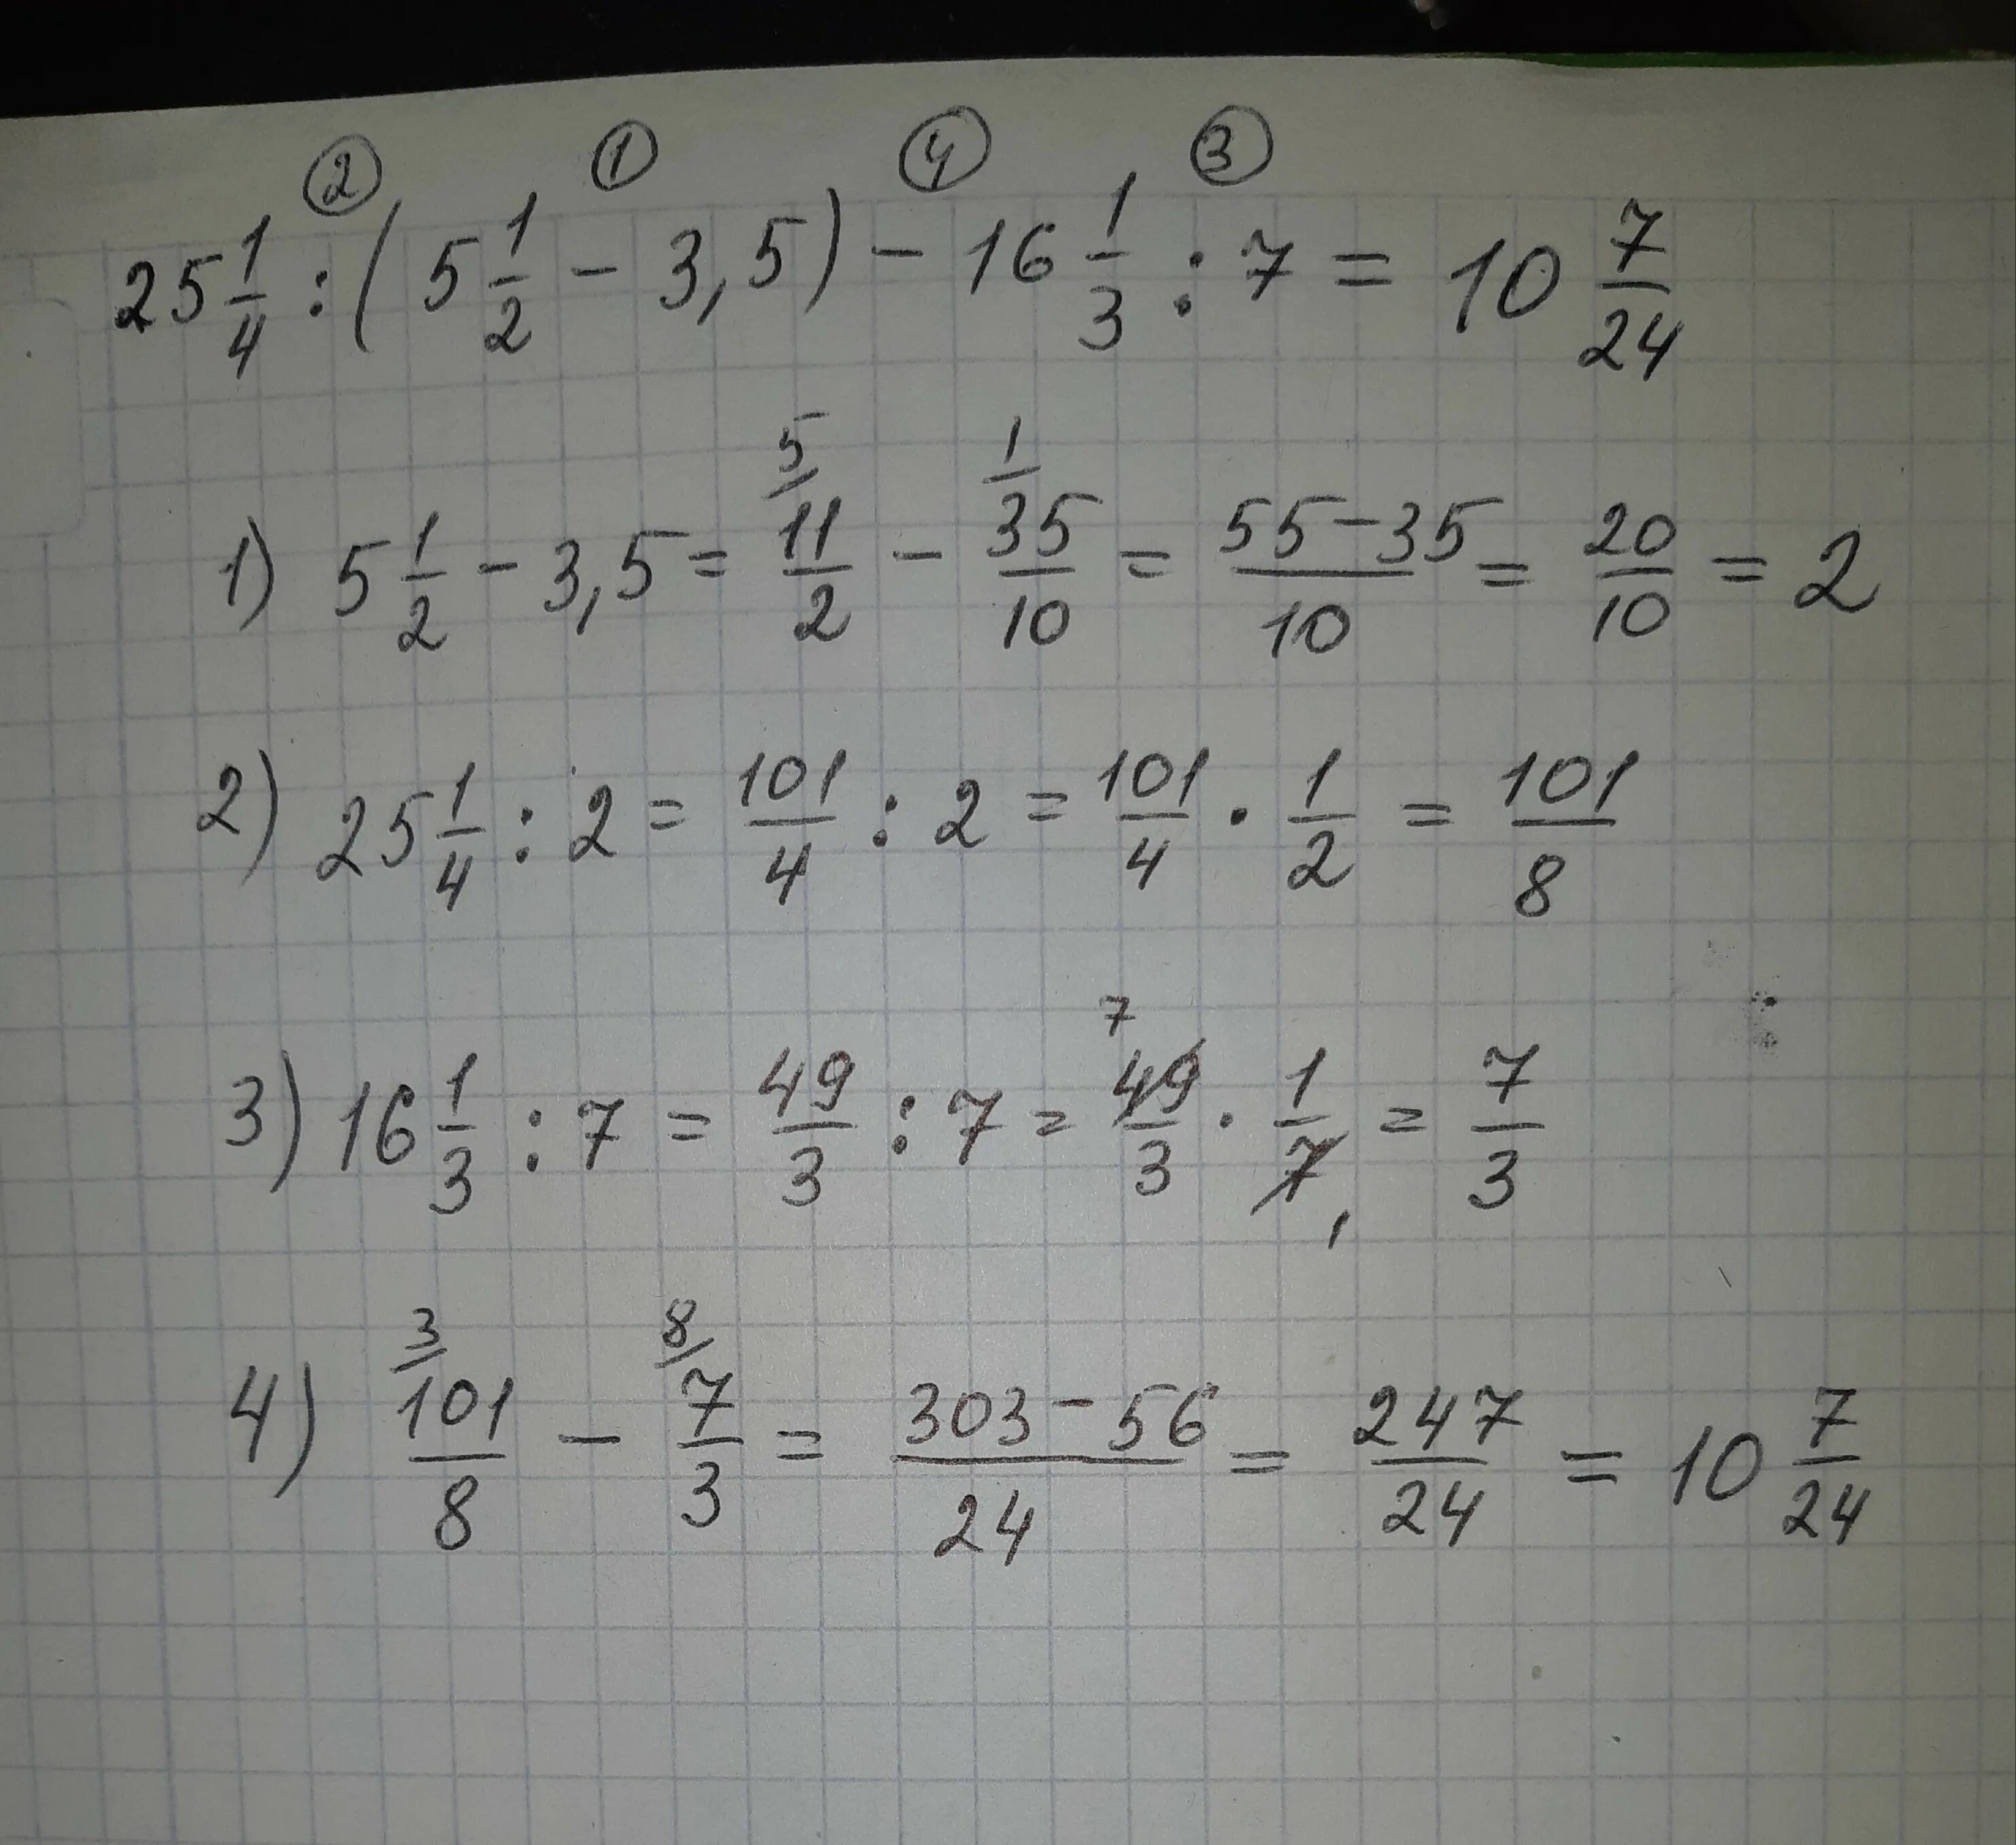 ② ① ④ ③
25 1/4 : (5 1/2 - 3,5) - 16 1/3 : 7 = 10 7/24
5/ 1/
1) 5 1/2 - 3,5 = 11/2 - 35/10 = 55-35/10 = 20/10 = 2
2) 25 1/4 : 2 = 101/4 : 2 = 101/4 · 1/2 = 101/8
7
3) 16 1/3 : 7 = 49/3 : 7 = 49/3 · 1/7 = 7/3
1
3/ 8/
4) 101/8 - 7/3 = 303-56/24 = 247/24 = 10 7/24